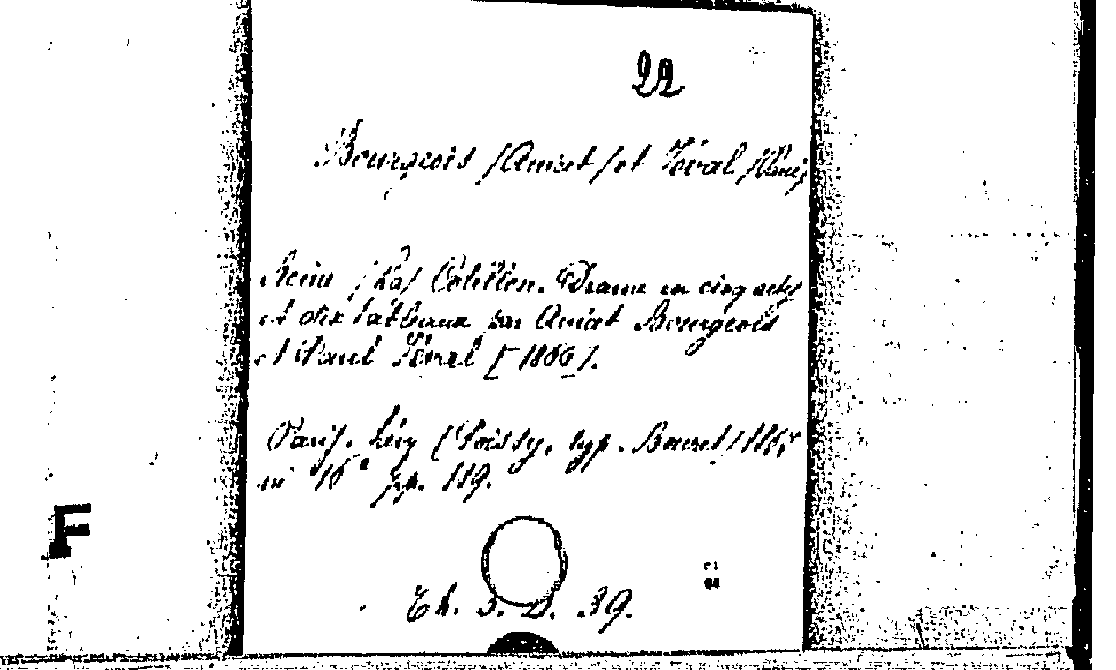 22
Bourgeois /Anicet/ et Féval /Paul/
Reine /La/ Cotillon. Drame en cinq actes
et dix tableaux par Anicet Bourgeois
et Paul Féval [-1866].
Paris. Lévy (Poissy. typ. Bouret)
in 16° pp. 119.
F